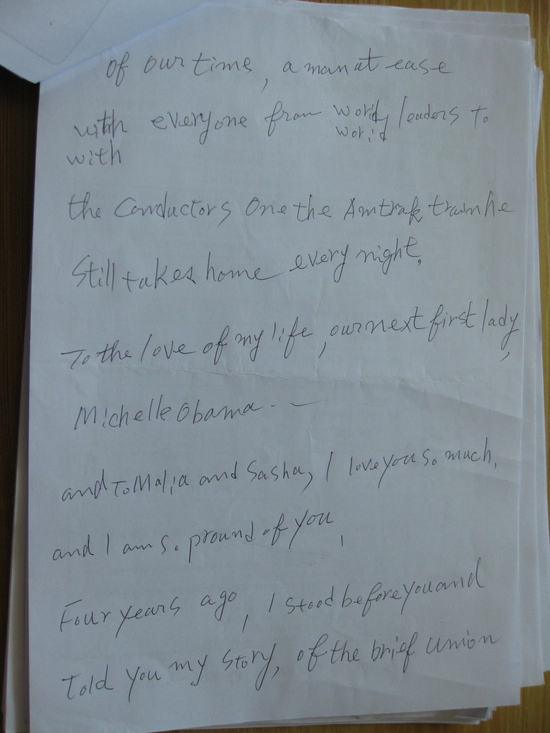 of our time, a man at ease
with everyone from wordy leaders to
with world
the Conductors One the Amtrak train he
Still takes home every night.
To the love of my life, our next first lady,
Michelle Obama --
and To Malia and Sasha, I love you so much,
and I am so pround of you,
Four years ago, I stood before you and
Told you my story, of the brief union